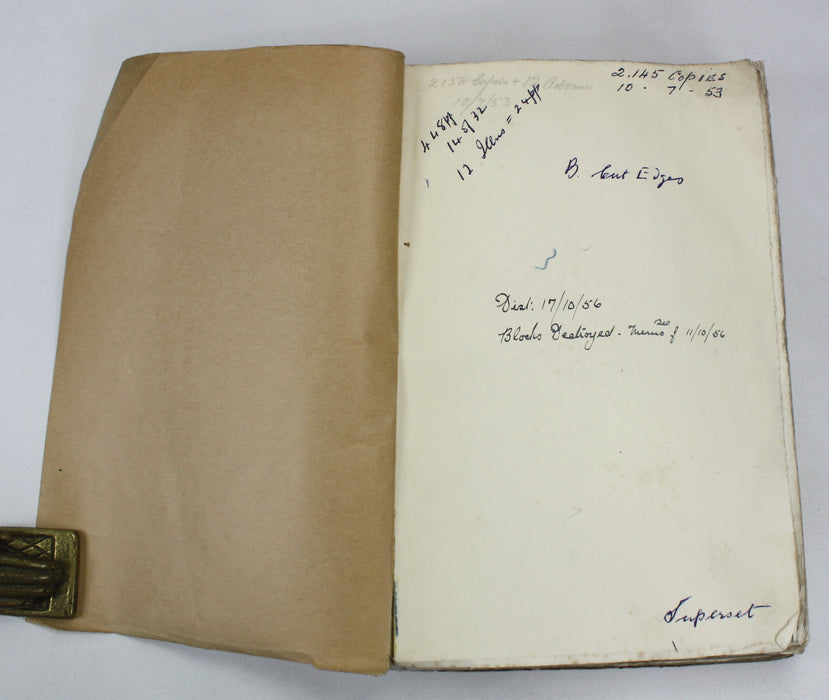 2158 Copies + 12 Advance
10/7/53
2.145 COPIES
10 - 7 - 53
448pp
14 of 32
12 Illus = 24pp
B. Cut Edges
Dist. 17/10/56
Blocks Destroyed - see memo of 11/10/56
Superset